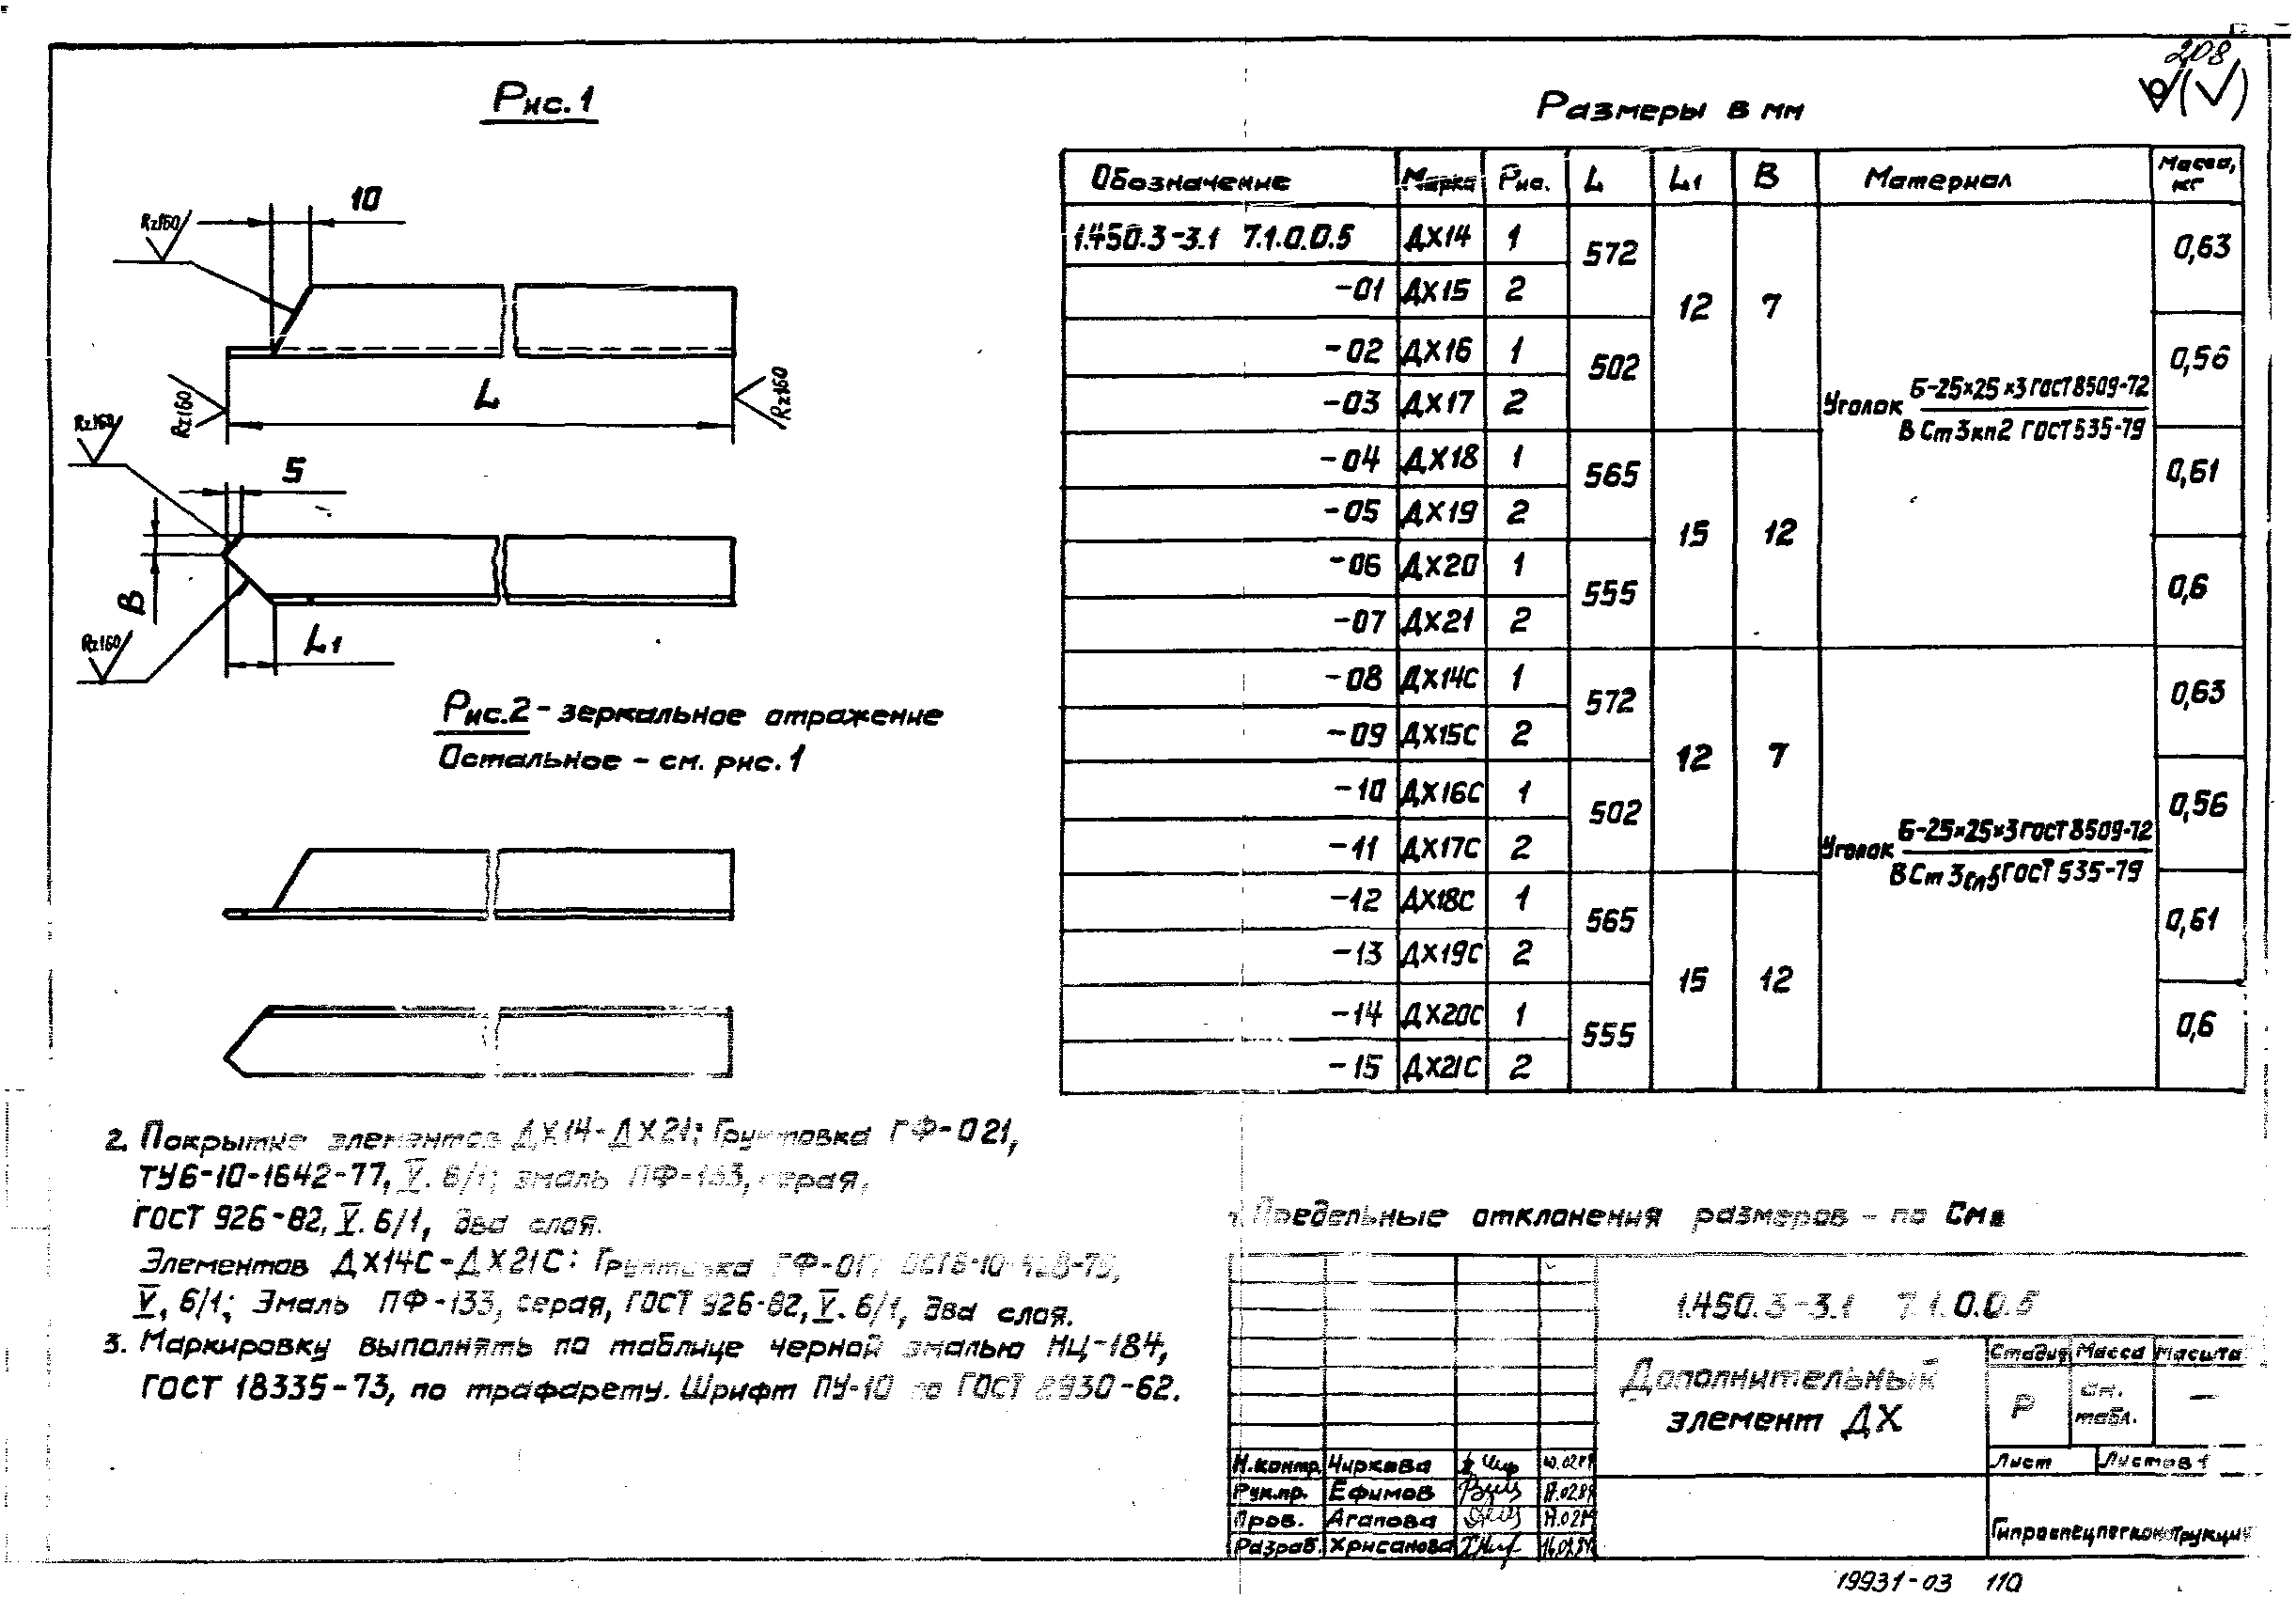 208
Рис. 1
10
Rz160
L
Rz160
Rz160
Rz160
5
В
L1
Rz160
Рис.2 - зеркальное отражение
Остальное - см. рис. 1
Размеры в мм
Обозначение Марка Рис. L L1 В Материал Масса, кг
1.450.3-3.1 7.1.0.0.5 ДХ14 1 572 12 7 0,63
-01 ДХ15 2
-02 ДХ16 1 502 0,56
-03 ДХ17 2
Уголок Б-25×25×3 ГОСТ 8509-72
В Ст 3 кп2 ГОСТ 535-79
-04 ДХ18 1 565 15 12 0,61
-05 ДХ19 2
-06 ДХ20 1 555 0,6
-07 ДХ21 2
-08 ДХ14С 1 572 12 7 0,63
-09 ДХ15С 2
-10 ДХ16С 1 502 0,56
-11 ДХ17С 2
Уголок Б-25×25×3 ГОСТ 8509-72
В Ст 3 сп5 ГОСТ 535-79
-12 ДХ18С 1 565 15 12 0,61
-13 ДХ19С 2
-14 ДХ20С 1 555 0,6
-15 ДХ21С 2
2. Покрытие элементов ДХ14-ДХ21: Грунтовка ГФ-021,
ТУ6-10-1642-77, V. 6/1; эмаль ПФ-133, серая,
ГОСТ 926-82, V. 6/1, два слоя.
Элементов ДХ14С-ДХ21С: Грунтовка
V, 6/1; Эмаль ПФ-133, серая, ГОСТ 926-82, V. 6/1, два слоя.
3. Маркировку выполнять по таблице черной эмалью НЦ-184,
ГОСТ 18335-73, по трафарету. Шрифт ПУ-10 по ГОСТ 2930-62.
Предельные отклонения размеров - по
1.450.3-3.1 7.1.0.0.5
Дополнительный
элемент ДХ
Стадия Масса Масшта
Р см. табл. —
Лист Листов 1
Гипроспецлегконструкция
Н.контр. Чиркова
Рук.пр. Ефимов
Пров. Агапова
Разраб. Хрисанова
19931-03 110